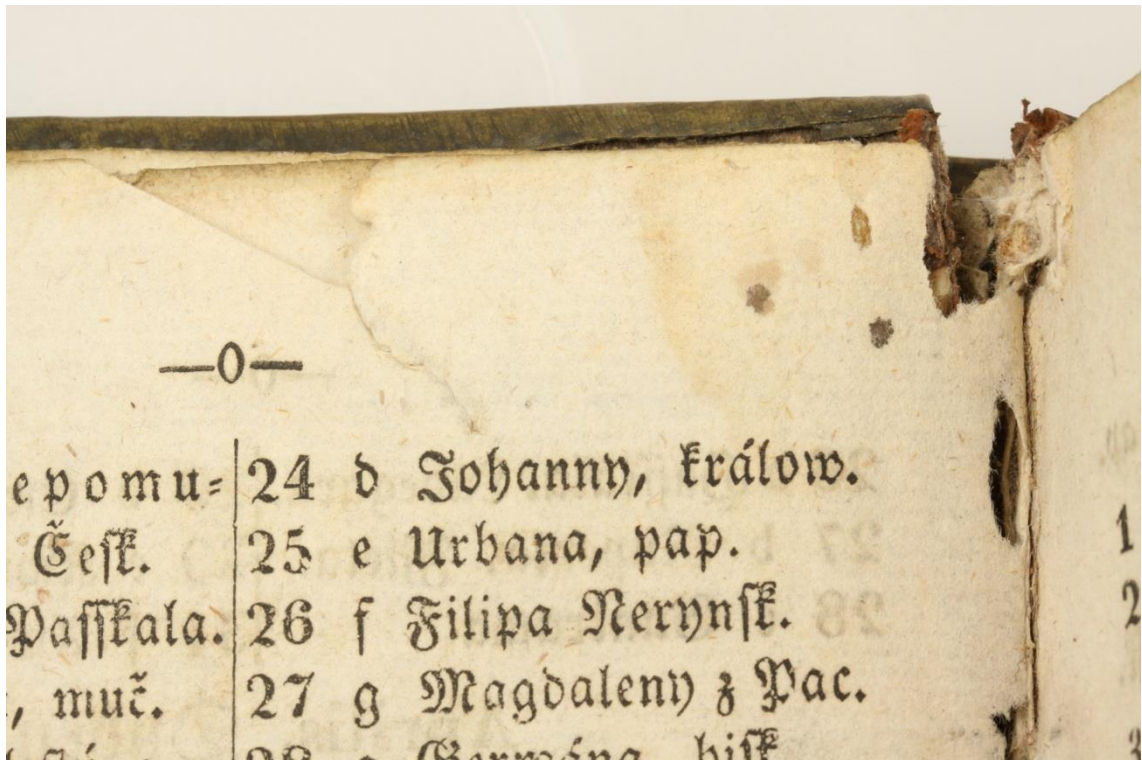 —0—
epomu⸗
Česk.
Passkala.
, muč.
24 d Johanny, králow.
25 e Urbana, pap.
26 f Filipa Nerynsk.
27 g Magdaleny z Pac.
28 a Germána, bisk.
1
2
3